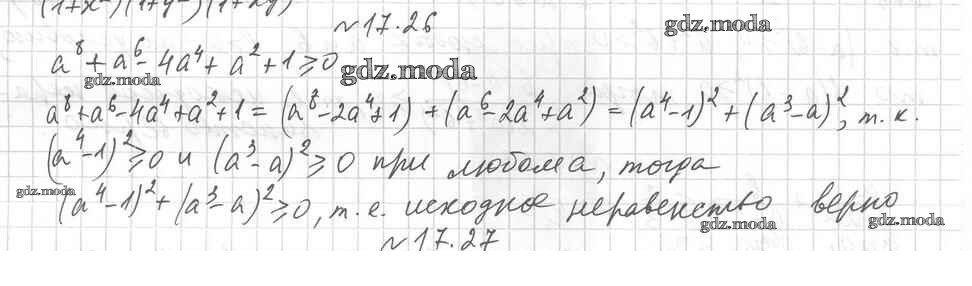 (1+x²)(1+y²)(1+xy)
№17.26
gdz.moda
a⁸ + a⁶ - 4a⁴ + a² + 1 ⩾ 0
gdz.moda
gdz.moda
a⁸+a⁶-4a⁴+a²+1 = (a⁸-2a⁴+1) + (a⁶-2a⁴+a²) = (a⁴-1)² + (a³-a)², т.к.
(a⁴-1)² ⩾ 0 и (a³-a)² ⩾ 0 при любом a, тогда
gdz.moda
(a⁴-1)² + (a³-a)² ⩾ 0, т.е. исходное неравенство верно
gdz.moda
gdz.moda
№17.27